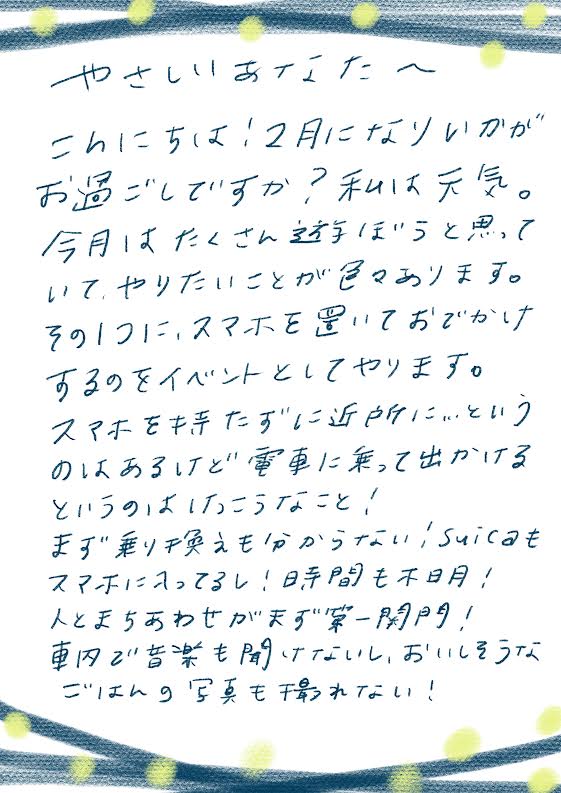 やさしいあなたへ
こんにちは！2月になりいかが
お過ごしですか？私は天気。
今月はたくさん遊ぼうと思って
いて、やりたいことが色々あります。
その1つに、スマホを置いておでかけ
するのをイベントとしてやります。
スマホを持たずに近所に…という
のはあるけど電車に乗って出かける
というのはけっこうなこと！
まず乗り換えも分からない！Suicaも
スマホに入ってるし！時間も不明！
人とまちあわせがまず第一関門！
車内で音楽も聞けないし、おいしそうな
ごはんの写真も撮れない！